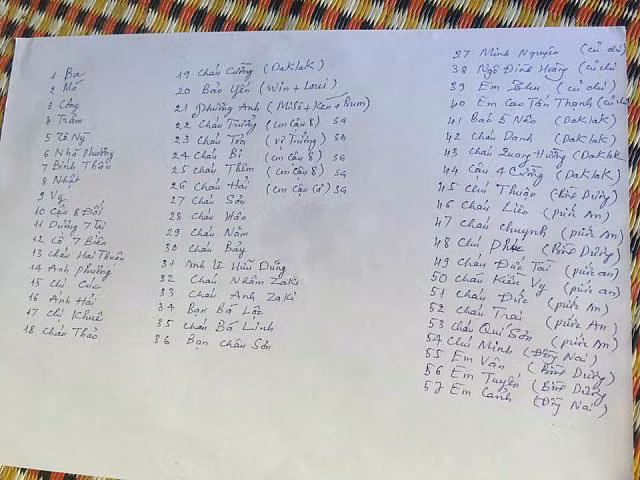 1 Ba
2 Má
3 Công
4 Trâm
5 Tê Ny
6 Nhã Phương
7 Bình Thân
8 Nhật
9 Vy
10 Cậu 8 Đối
11 Dượng 7 Tài
12 Cô 7 Biên
13 Cháu Hai Thuân
14 Anh Phương
15 Chị Cúc
16 Anh Hải
17 Chị Khuê
18 Cháu Thảo
19 Cháu Cường (DakLak)
20 Bảo Yến (Win + Loui)
21 Phương Anh (MiSô + Ken + Kum)
22 Cháu Trưởng (Cm Cậu 8) SG
23 Cháu Tòa (vợ Trưởng) SG
24 Cháu Bi (Cm Cậu 8) SG
25 Cháu Thêm (Cm Cậu 8) SG
26 Cháu Hải (Cm Cậu Cả) SG
27 Cháu Sơn
28 Cháu Hân
29 Cháu Năm
30 Cháu Bảy
31 Anh Lê Hữu Dũng
32 Cháu Nhâm Zaki
33 Cháu Anh Zaki
34 Bạn Bá Lộc
35 Cháu Bá Linh
36 Bạn Châu Sơn
37 Minh Nguyên (củ chi)
38 Ngô Đình Hoàng (củ chi)
39 Em (củ chi)
40 Em Cao Tấn Thạnh (củ chi)
41 Bác 5 Nên (DakLak)
42 Cháu Danh (DakLak)
43 Cháu Quang Hường (DakLak
44 Cậu 4 Cường (DakLak)
45 Chú Thuận (Bình Dương)
46 Cháu Liên (Phước An)
47 Cháu Chuynh (Phước An)
48 Chú Phúc (Bình Dương)
49 Cháu Đức Tài (Phước an)
50 Cháu Kiều Vy (Phước an)
51 Cháu Đức (Phước An)
52 Cháu Trai (Phước An)
53 Cháu Quí Sơn (Phước An)
54 Chú Minh (Đồng Nai)
55 Em Vân (Bình Dương)
56 Em Tuyên (Bình Dương)
57 Em Cảnh (Đồng Nai)